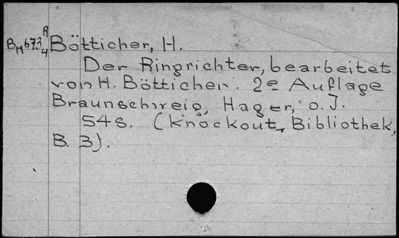 BM673 R4 Bötticher, H.
Der Ringrichter, bearbeitet
von H. Bötticher. 2e Auflage
Braunschweig, Hager, o.J.
54s. (Knockout, Bibliothek,
B. 3).